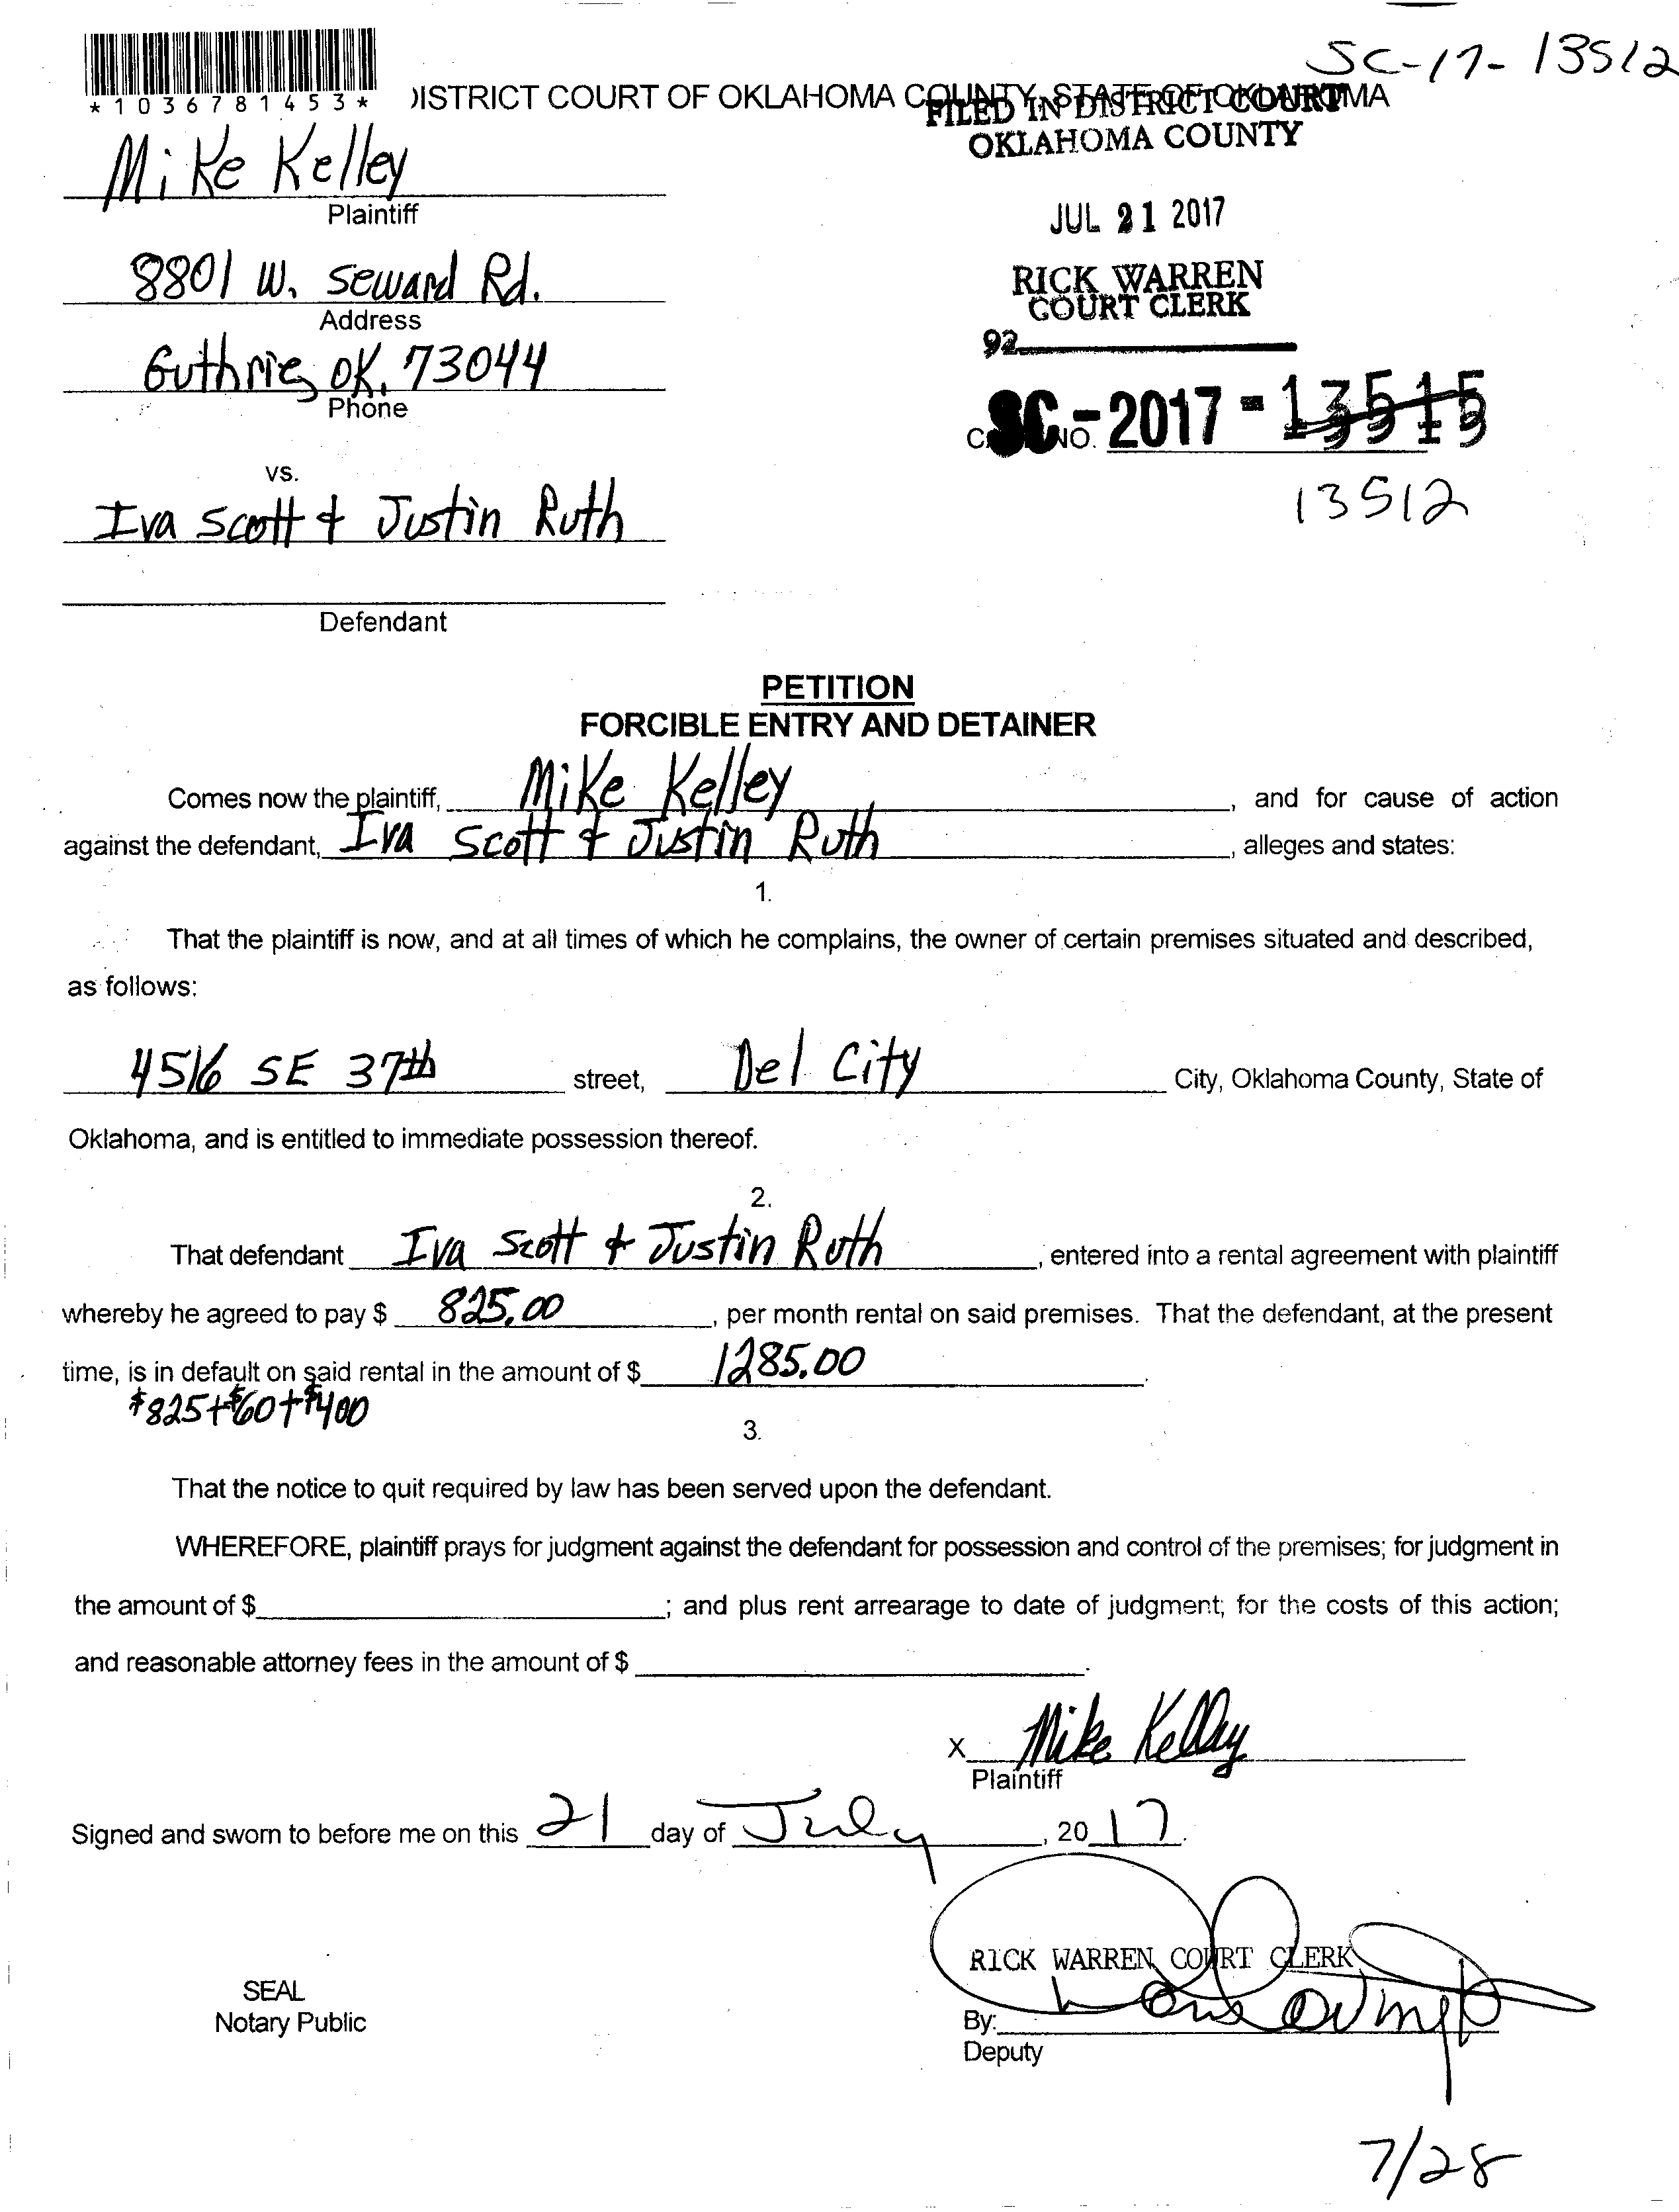 SC-17-13512
*1036781453*
DISTRICT COURT OF OKLAHOMA COUNTY, STATE OF OKLAHOMA
FILED IN DISTRICT COURT
OKLAHOMA COUNTY
Mike Kelley
Plaintiff
JUL 21 2017
8801 W. Seward Rd.
Address
RICK WARREN
COURT CLERK
92
Guthrie, OK. 73044
Phone
SC-2017-13515
NO.
13512
vs.
Iva Scott & Justin Ruth
Defendant
PETITION
FORCIBLE ENTRY AND DETAINER
Comes now the plaintiff, Mike Kelley, and for cause of action
against the defendant, Iva Scott & Justin Ruth, alleges and states:
1.
That the plaintiff is now, and at all times of which he complains, the owner of certain premises situated and described,
as follows:
4516 SE 37th street, Del City City, Oklahoma County, State of
Oklahoma, and is entitled to immediate possession thereof.
2.
That defendant Iva Scott & Justin Ruth, entered into a rental agreement with plaintiff
whereby he agreed to pay $ 825.00, per month rental on said premises. That the defendant, at the present
time, is in default on said rental in the amount of $ 1285.00.
$825+$60+$400
3.
That the notice to quit required by law has been served upon the defendant.
WHEREFORE, plaintiff prays for judgment against the defendant for possession and control of the premises; for judgment in
the amount of $; and plus rent arrearage to date of judgment; for the costs of this action;
and reasonable attorney fees in the amount of $.
X Mike Kelley
Plaintiff
Signed and sworn to before me on this 21 day of July, 2017.
RICK WARREN, COURT CLERK
SEAL
Notary Public
By:
Deputy
7/28